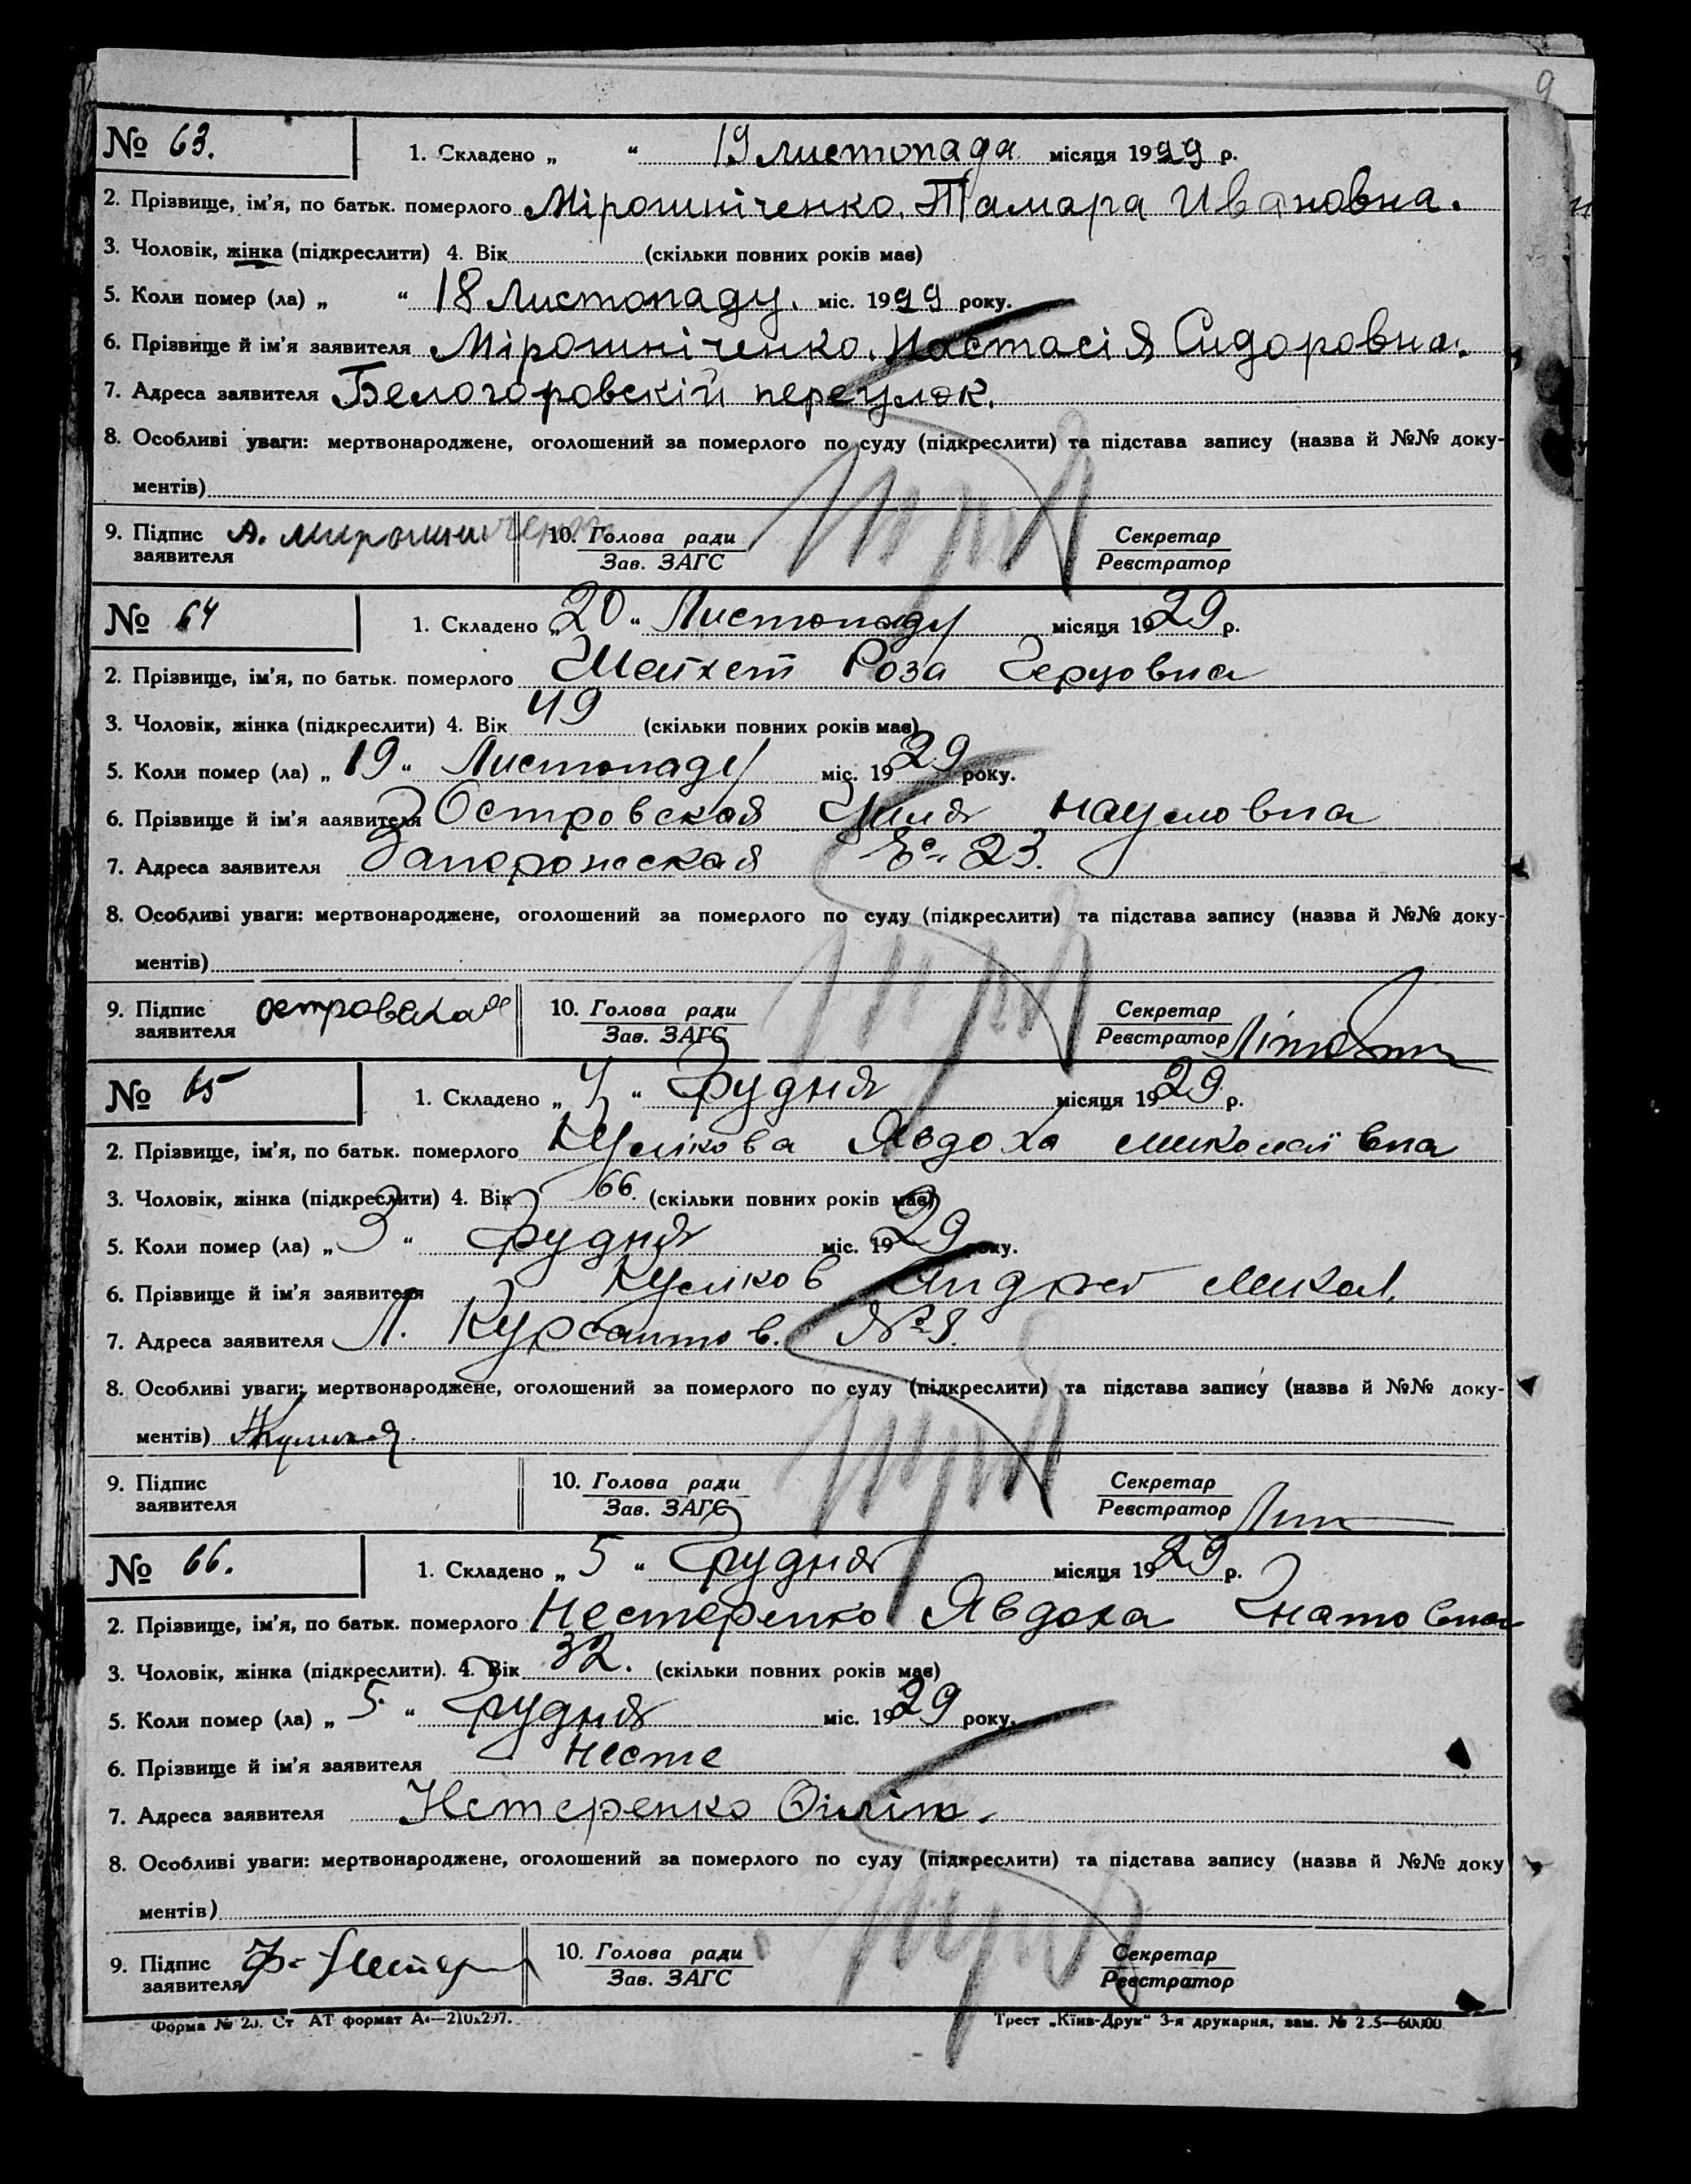 9
№ 63.
1. Складено „ “ 19 листопада місяця 1929 р.
2. Прізвище, ім’я, по батьк. померлого Мірошніченко. Тамара Ивановна.
3. Чоловік, жінка (підкреслити) 4. Вік (скільки повних років має)
5. Коли помер (ла) „ “ 18 Листопаду. міс. 1929 року.
6. Прізвище й ім’я заявителя Мірошніченко. Настасія Сидоровна.
7. Адреса заявителя Белогоровскій переулок.
8. Особливі уваги: мертвонароджене, оголошений за померлого по суду (підкреслити) та підстава запису (назва й №№ доку-
ментів)
9. Підпис А. Мирошниченко 10. Голова ради Секретар
заявителя Зав. ЗАГС Реєстратор
№ 64
1. Складено „20“ Листопаду місяця 1929 р.
2. Прізвище, ім’я, по батьк. померлого Шейхет Роза Герцовна
3. Чоловік, жінка (підкреслити) 4. Вік 49 (скільки повних років має)
5. Коли помер (ла) „19“ Листопаду міс. 1929 року.
6. Прізвище й ім’я ааявителя Островская Наумовна
7. Адреса заявителя Запорожская 23.
8. Особливі уваги: мертвонароджене, оголошений за померлого по суду (підкреслити) та підстава запису (назва й №№ доку-
ментів)
9. Підпис островская 10. Голова ради Секретар
заявителя Зав. ЗАГС Реєстратор
№ 65
1. Складено „4“ Грудня місяця 1929 р.
2. Прізвище, ім’я, по батьк. померлого Кулікова Явдоха Миколаївна
3. Чоловік, жінка (підкреслити) 4. Вік 66. (скільки повних років має)
5. Коли помер (ла) „3“ Грудня міс. 1929 року.
6. Прізвище й ім’я заявителя Куліков Андрей Микол.
7. Адреса заявителя Л. Курсантов. №
8. Особливі уваги: мертвонароджене, оголошений за померлого по суду (підкреслити) та підстава запису (назва й №№ доку-
ментів)
9. Підпис 10. Голова ради Секретар
заявителя Зав. ЗАГС Реєстратор
№ 66.
1. Складено „5“ Грудня місяця 1929 р.
2. Прізвище, ім’я, по батьк. померлого Нестеренко Явдоха Гнатовна
3. Чоловік, жінка (підкреслити). 4. Вік 32. (скільки повних років має)
5. Коли помер (ла) „5.“ Грудня міс. 1929 року.
6. Прізвище й ім’я заявителя Несте
7. Адреса заявителя Нестеренко
8. Особливі уваги: мертвонароджене, оголошений за померлого по суду (підкреслити) та підстава запису (назва й №№ доку
ментів)
9. Підпис 10. Голова ради Секретар
заявителя Зав. ЗАГС Реєстратор
Форма № 20. Ст АТ формат А4—210х297. Трест „Київ-Друк“ 3-я друкарня, зам. №